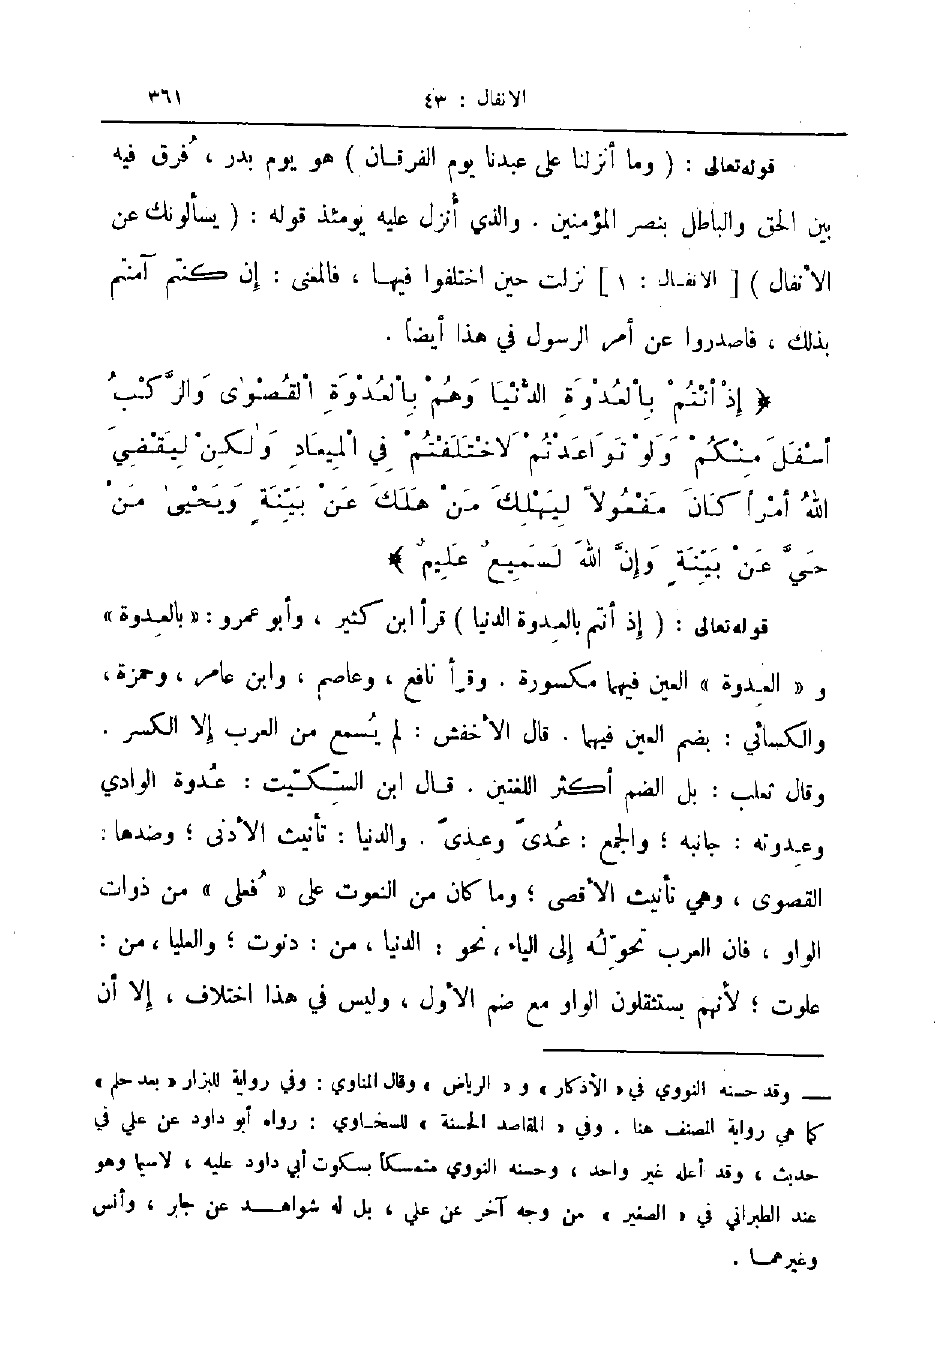 الانفال : ٤٣ ٣٦١
قوله تعالى : ( وما أنزلنا على عبدنا يوم الفرقـان ) هو يوم بدر ، فُرق فيه
بين الحق والباطل بنصر المؤمنين . والذي أُنزل عليه يومئذ قوله : ( يسألونك عن
الأنفال ) [ الانفـال : ١ ] نزلت حين اختلفوا فيهـا ، فالمعنى : إن كنتم آمنتم
بذلك ، فاصدروا عن أمر الرسول في هذا أيضاً .
﴿ إِذْ أَنْتُمْ بِالْعُدْوَةِ الدُّنْيَا وَهُمْ بِالْعُدْوَةِ الْقُصْوٰى وَالرَّكْبُ
أَسْفَلَ مِنْكُمْ وَلَوْ تَوَاعَدْتُمْ لَاخْتَلَفْتُمْ فِي الْمِيعَادِ وَلٰكِنْ لِيَقْضِيَ
اللهُ أَمْراً كَانَ مَفْعُولاً لِيَهْلِكَ مَنْ هَلَكَ عَنْ بَيِّنَةٍ وَيَحْيىٰ مَنْ
حَيَّ عَنْ بَيِّنَةٍ وَإِنَّ اللهَ لَسَمِيعٌ عَلِيمٌ ﴾
قوله تعالى : ( إذ أنتم بالعدوة الدنيا ) قرأ ابن كثير ، وأبو عمرو : « بالعِدوة »
و « العِدوة » العين فيهما مكسورة . وقرأ نافع ، وعاصم ، وابن عامر ، وحمزة ،
والكسائي : بضم العين فيهما . قال الأخفش : لم يُسمع من العرب إلا الكسر .
وقال ثعلب : بل الضم أكثر اللغتين . قـال ابن السِّكِّيت : عُدوة الوادي
وعِدوته : جانبه ؛ والجمع : عُدىً وعِدىً . والدنيا : تأنيث الأدنى ؛ وضدها :
القصوى ، وهي تأنيث الأقصى ؛ وما كان من النعوت على « فُعلى » من ذوات
الواو ، فان العرب تحوِّلُه إلى الياء ، نحو : الدنيا ، من : دنوت ؛ والعليا ، من :
علوت ؛ لأنهم يستثقلون الواو مع ضم الأول ، وليس في هذا اختلاف ، إلا أن
ــ وقد حسنه النووي في « الأذكار » و « الرياض » وقال المناوي : وفي رواية للبزار « بعد حلم »
كما هي رواية المصنف هنا . وفي « المقاصد الحسنة » للسخـاوي : رواه أبو داود عن علي في
حديث ، وقد أعله غير واحد ، وحسنه النووي متمسكاً بسكوت أبي داود عليه ، لاسيما وهو
عند الطبراني في « الصغير » من وجه آخر عن علي ، بل له شواهـد عن جابر ، وأنس
وغيرهمـا .